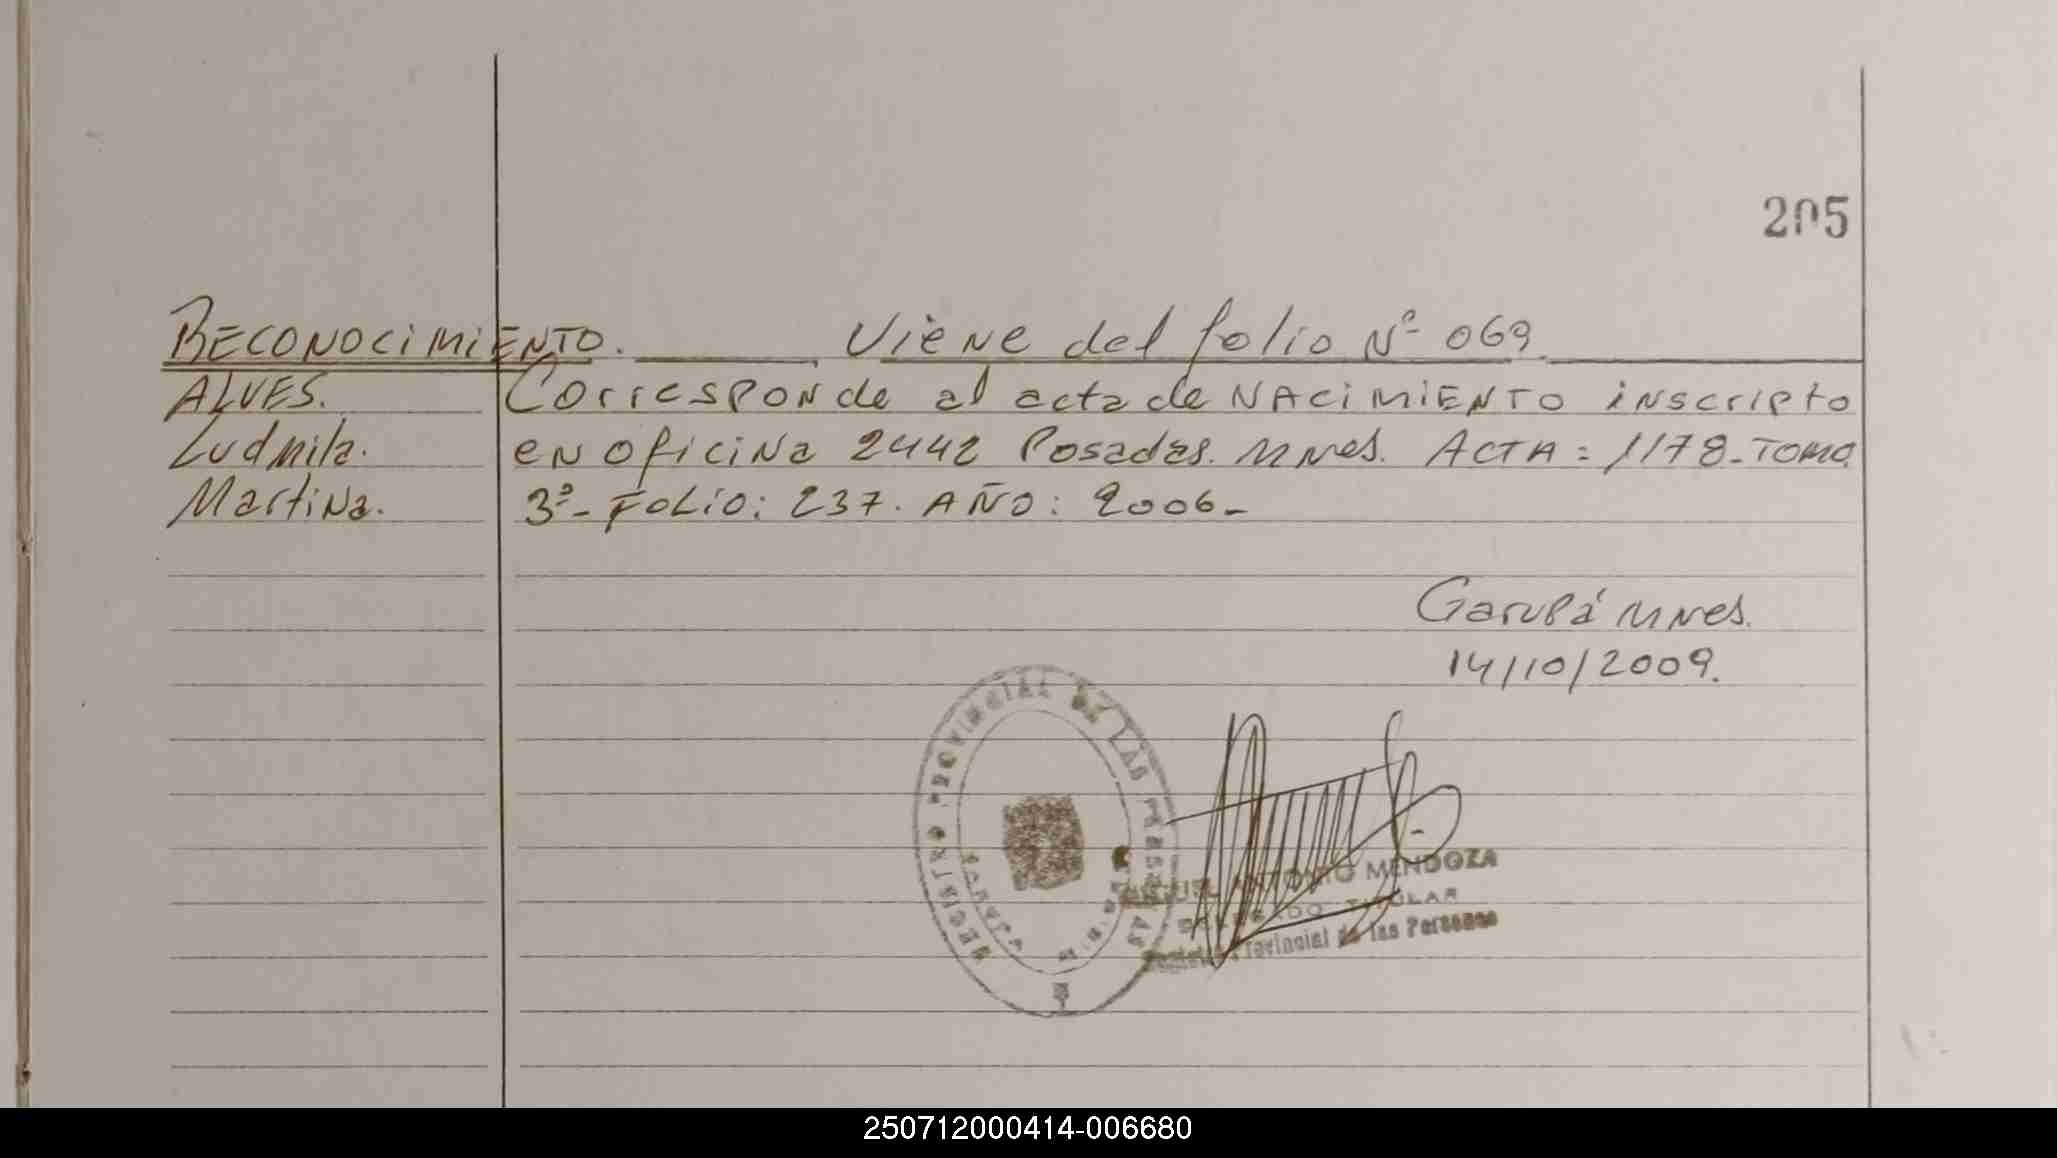 205
RECONOCIMIENTO. Viene del folio Nº 069.
ALVES. Corresponde al acta de NACIMIENTO inscripto
Ludmila. en oficina 2442 Posadas. Mnes. ACTA: 1178-TOMO
Martina. 3º- FOLIO: 237. AÑO: 2006-
Garupá Mnes.
14/10/2009.
REGISTRO PROVINCIAL DE LAS PERSONAS
ANTONIO MENDOZA
DELEGADO TITULAR
Registro Provincial de las Personas
250712000414-006680